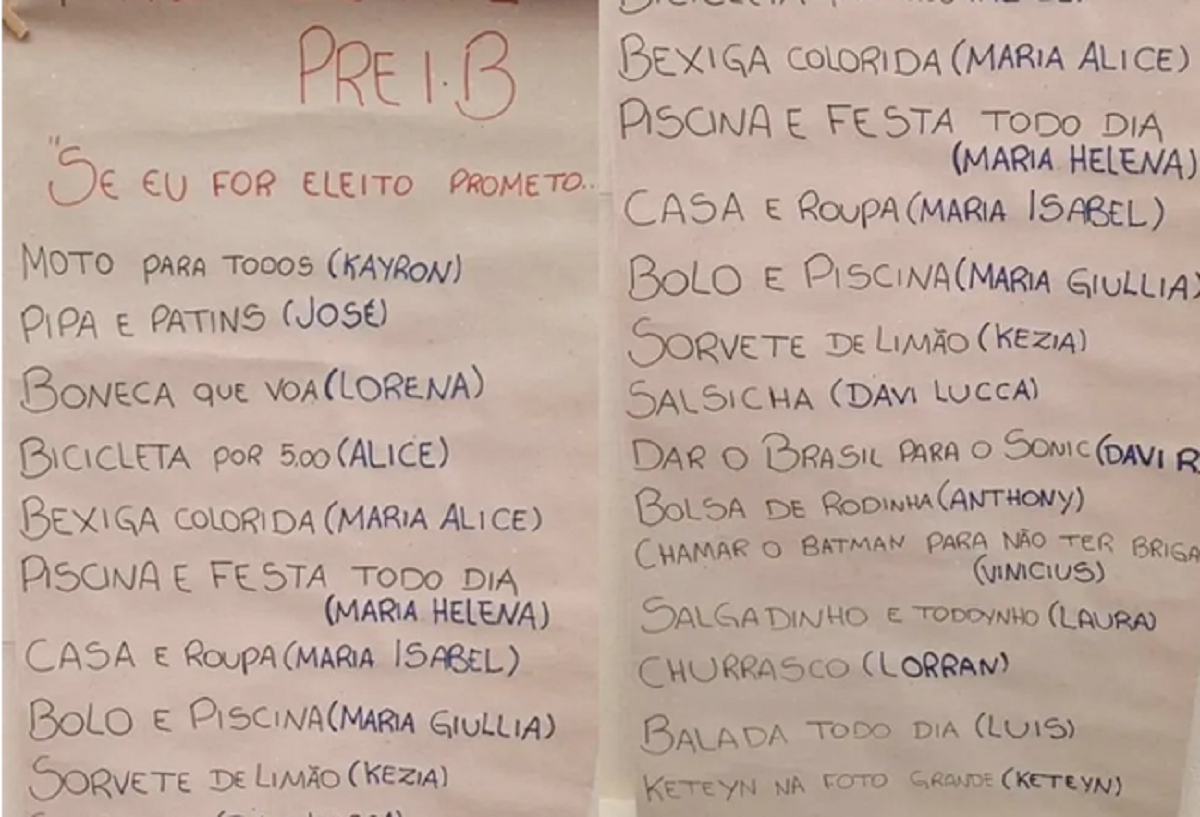 PRE I.B
"SE EU FOR ELEITO PROMETO...
MOTO PARA TODOS (KAYRON)
PIPA E PATINS (JOSÉ)
BONECA QUE VOA (LORENA)
BICICLETA POR 5,00 (ALICE)
BEXIGA COLORIDA (MARIA ALICE)
PISCINA E FESTA TODO DIA
(MARIA HELENA)
CASA E ROUPA (MARIA ISABEL)
BOLO E PISCINA (MARIA GIULLIA)
SORVETE DE LIMÃO (KEZIA)
BEXIGA COLORIDA (MARIA ALICE)
PISCINA E FESTA TODO DIA
(MARIA HELENA)
CASA E ROUPA (MARIA ISABEL)
BOLO E PISCINA (MARIA GIULLIA)
SORVETE DE LIMÃO (KEZIA)
SALSICHA (DAVI LUCCA)
DAR O BRASIL PARA O SONIC (DAVI R
BOLSA DE RODINHA (ANTHONY)
CHAMAR O BATMAN PARA NÃO TER BRIGA
(VINICIUS)
SALGADINHO E TODDYNHO (LAURA)
CHURRASCO (LORRAN)
BALADA TODO DIA (LUIS)
KETEYN NA FOTO GRANDE (KETEYN)